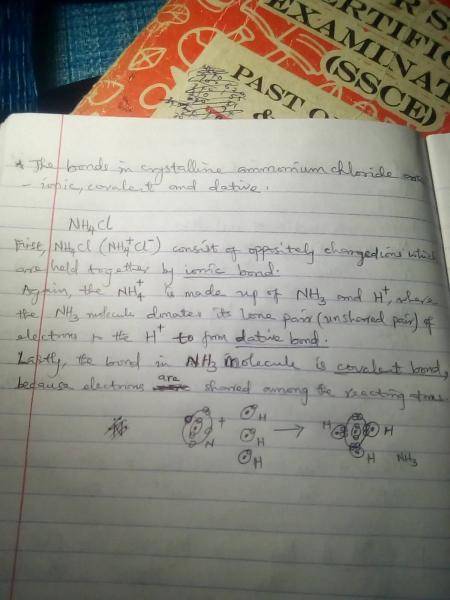 R S
ERTIFIC
EXAMINAT
(SSCE)
PAST Q
&
* The bonds in crystalline ammonium chloride are
- ionic, covalent and dative.
NH4Cl
First, NH4Cl (NH4+ Cl-) consist of oppositely changed ions which
are held together by ionic bond.
Again, the NH4+ is made up of NH3 and H+, where
the NH3 molecule donates its lone pair (unshared pair) of
electrons to the H+ to form dative bond.
Lastly, the bond in NH3 molecule is covalent bond,
because electrons are shared among the reacting atoms.
N + H H H → H H H NH3